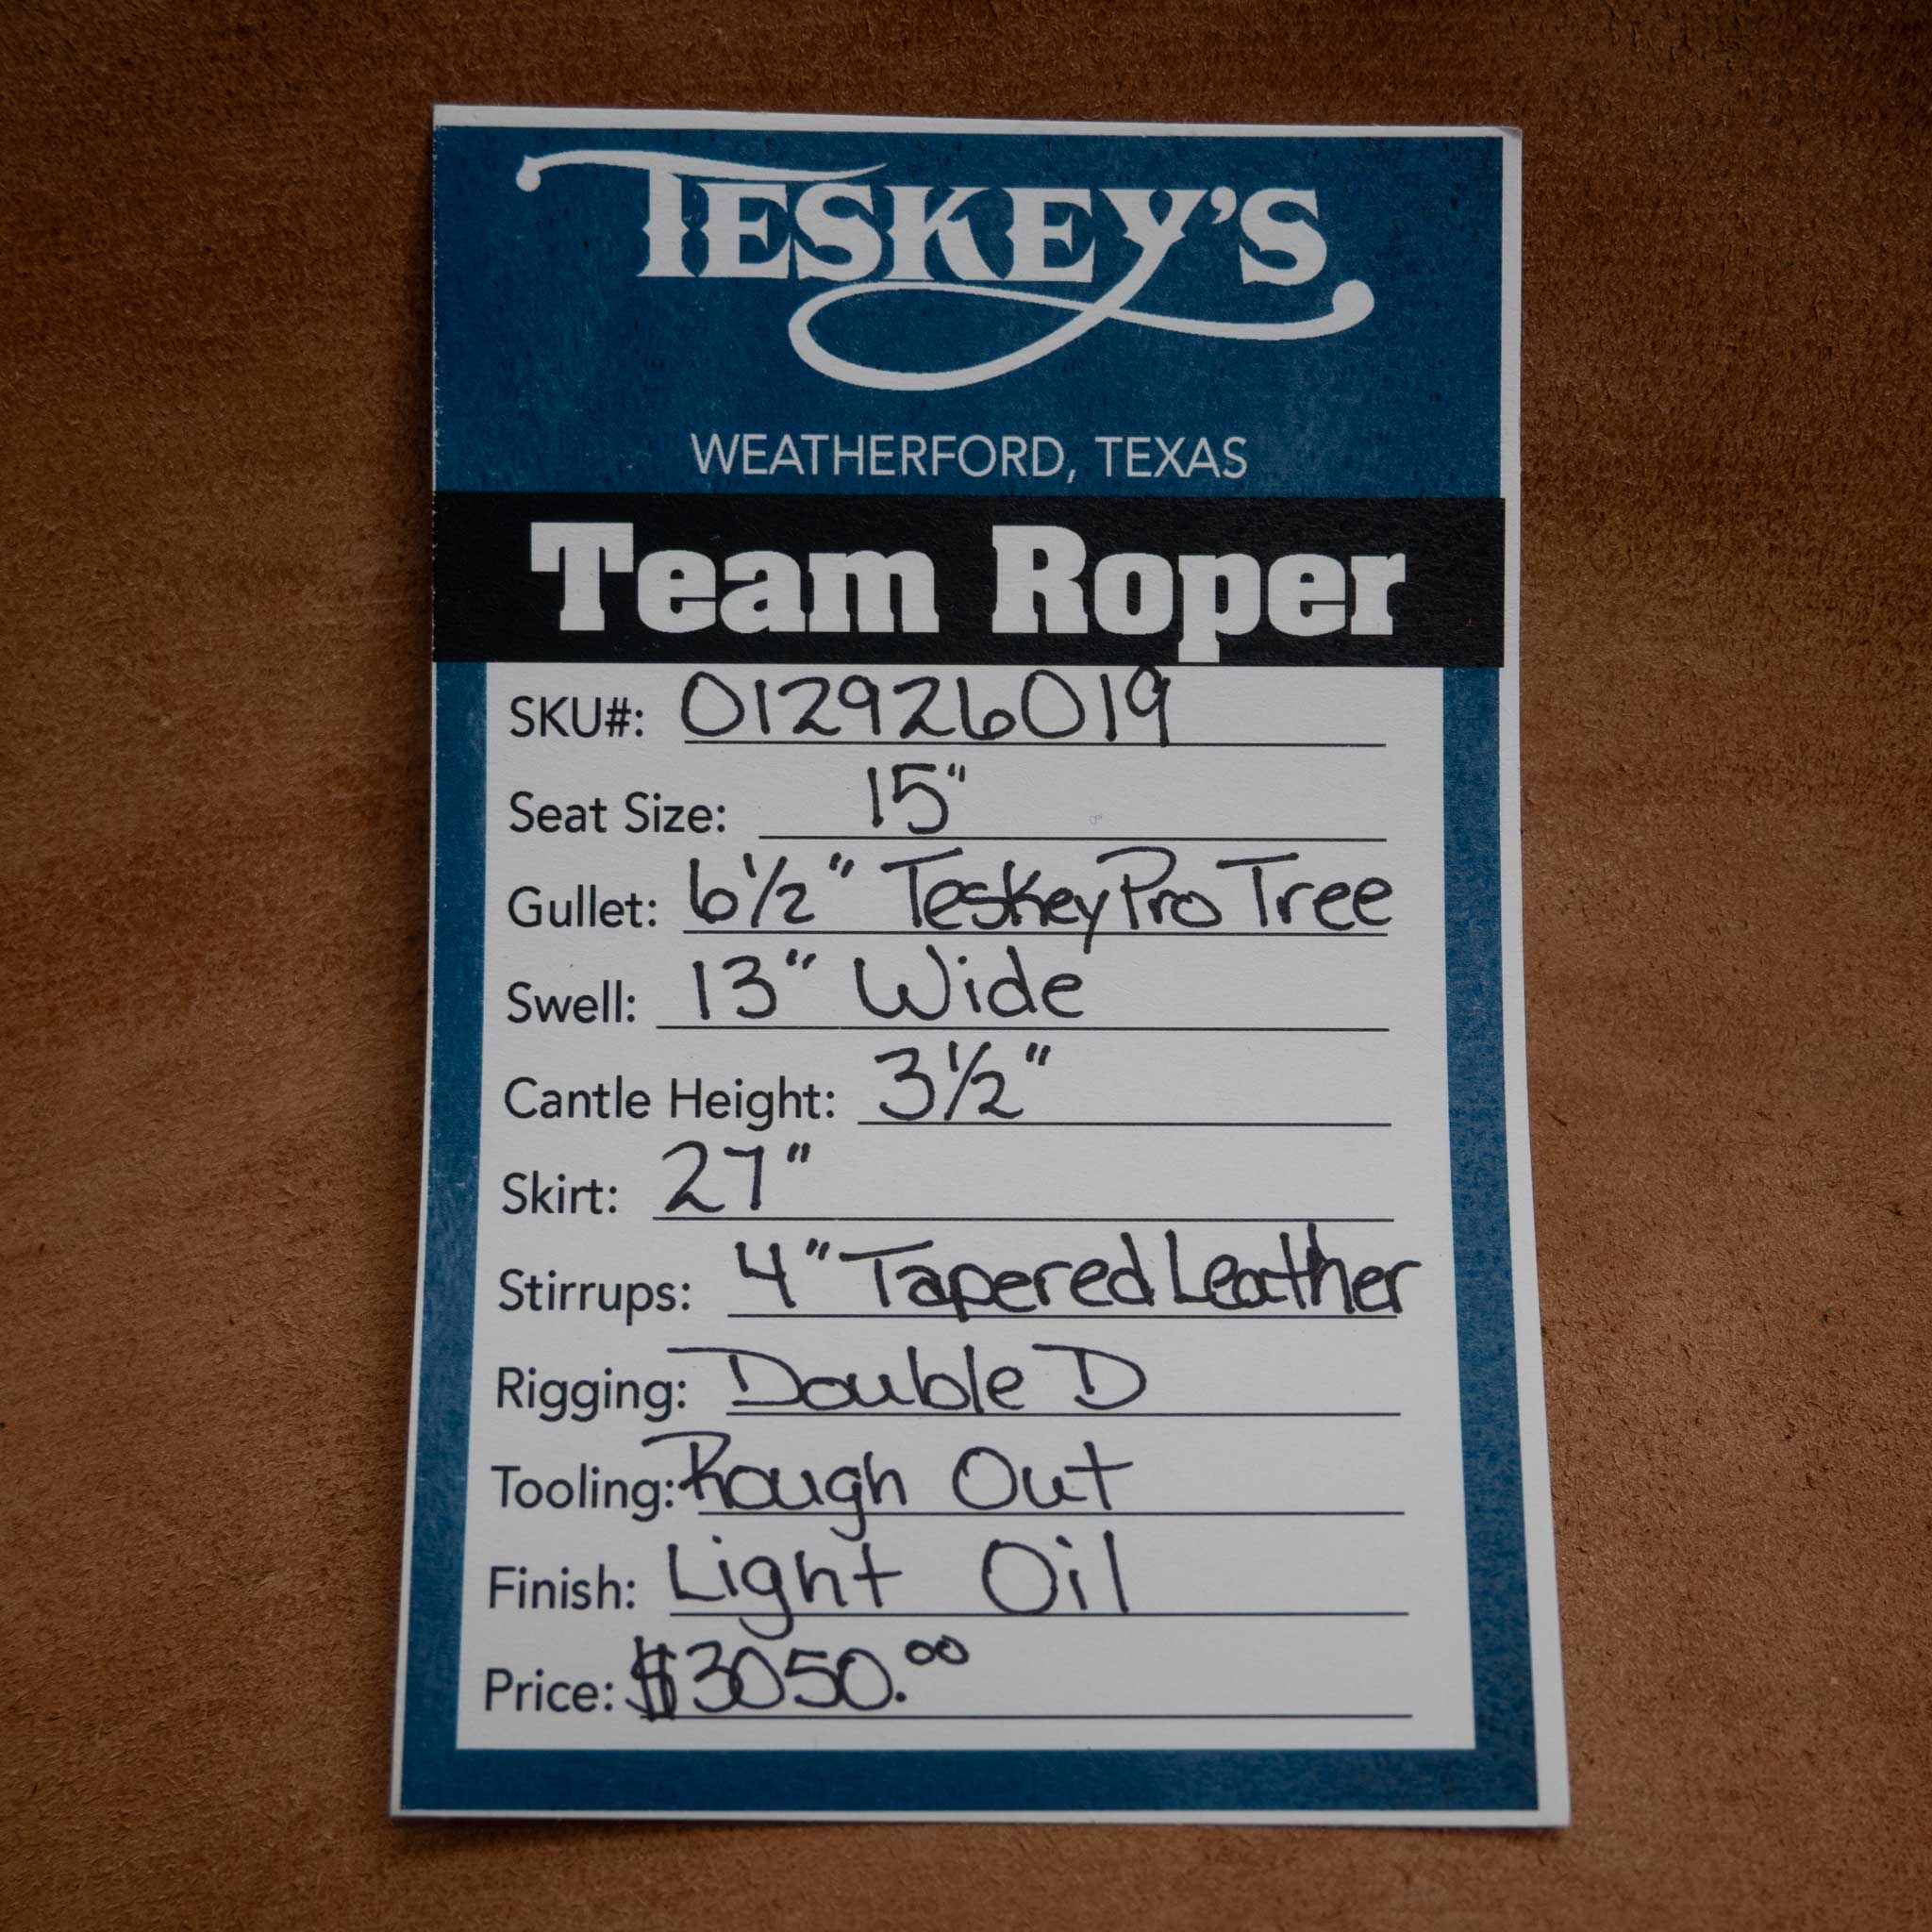 TESKEY'S
WEATHERFORD, TEXAS
Team Roper
SKU#: 012926019
Seat Size: 15"
Gullet: 6½" Teskey Pro Tree
Swell: 13" Wide
Cantle Height: 3½"
Skirt: 27"
Stirrups: 4" Tapered Leather
Rigging: Double D
Tooling: Rough Out
Finish: Light Oil
Price: $3050.00